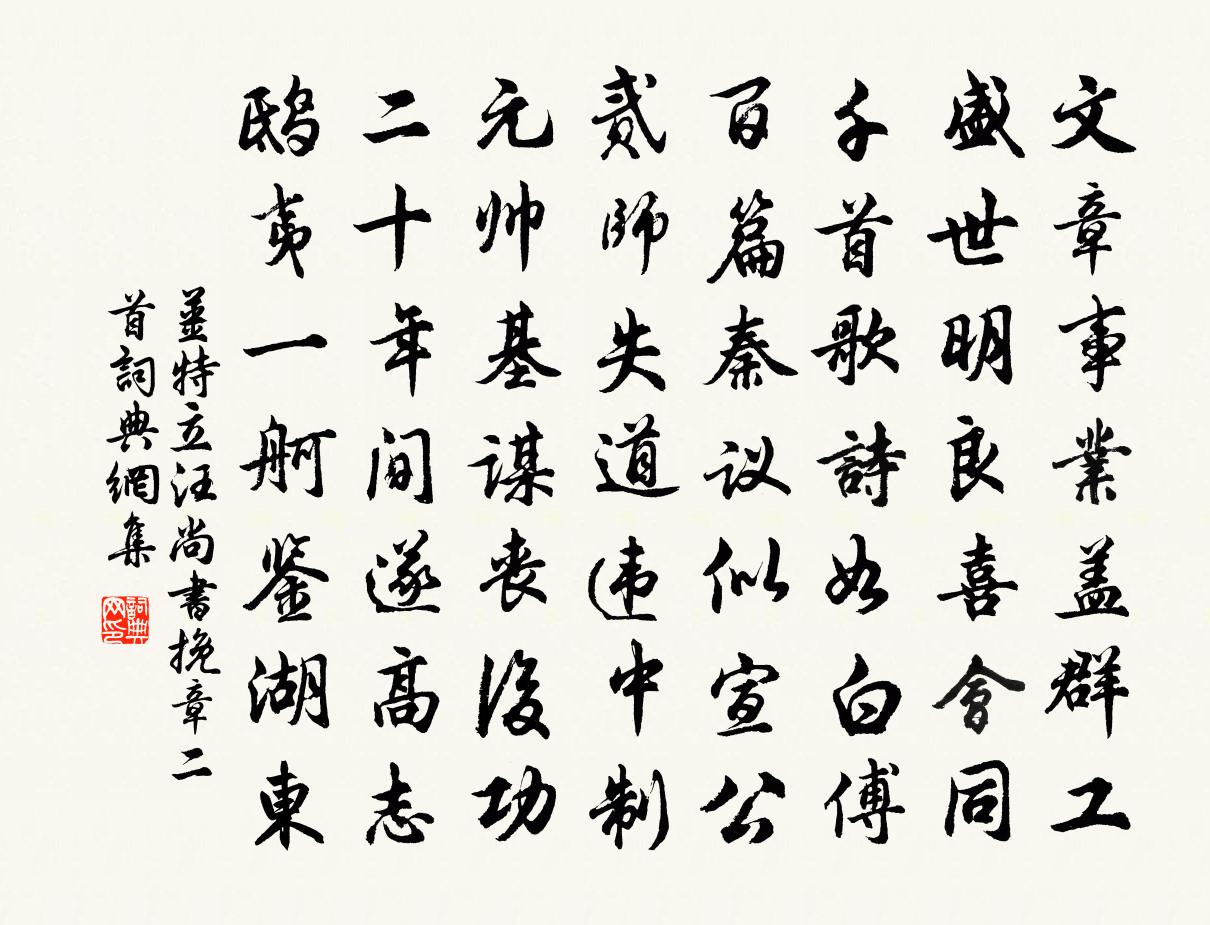 文章事業盖群工
盛世明良喜會同
千首歌詩如白傅
百篇奏议似宣公
貳師失道违中制
元帅基謀丧後功
二十年间遂高志
鸱夷一舸鉴湖東
姜特立汪尚書挽章二
首詞典網集
詞典网印